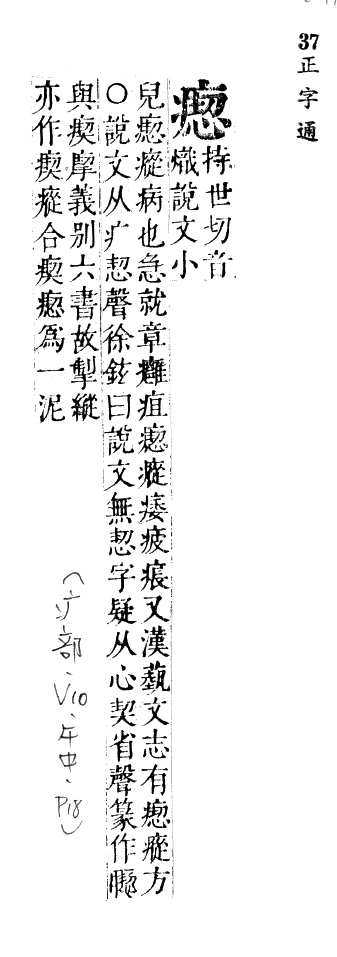 37正字通
瘛 持世切音
熾說文小
兒瘛瘲病也急就章癰疽瘛瘲痿疲痕又漢藝文志有瘛瘲方
○說文从疒恝聲徐鉉曰說文無恝字疑从心契省聲篆作
與瘈摩義别六書故掣縱
亦作瘈瘲合瘈瘛爲一泥
(疒部、V10、午中、P18)